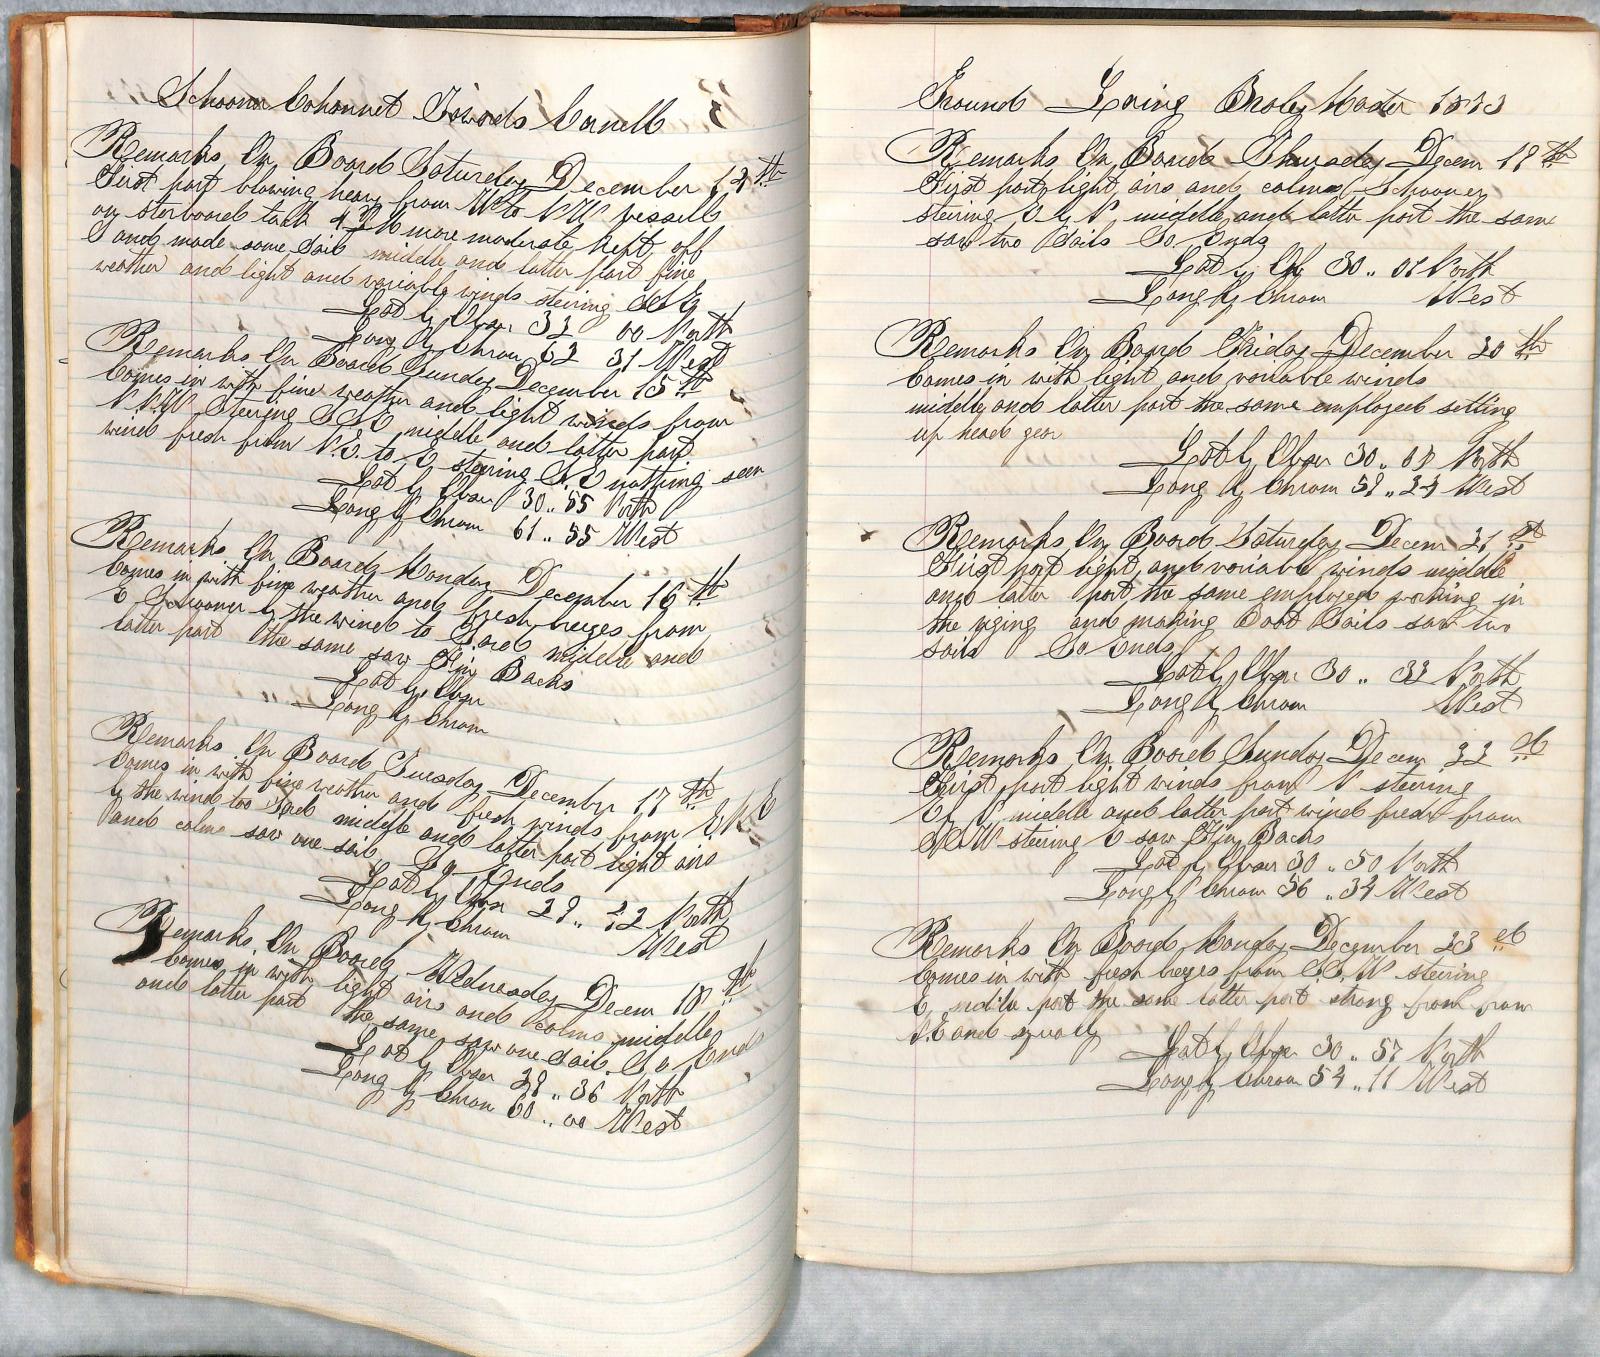 Schooner Cohannet Towards Correll
Remarks On Board Saturday December 14th
First part blowing heavy from W to NW vessell
on starboard tack 4 P M more moderate kept off
and made some Sail middle and latter part fine
weather and light and variable winds steering
Lat by Obser 32 00 North
Long by Chrom 62 31 West
Remarks On Board Sunday December 15th
Comes in with fine weather and light winds from
N.N.W. Steering middle and latter part
wind fresh from N.E. to E steering S.E nothing seen
Lat by Obser 30 .. 55 North
Long by Chrom 61 .. 55 West
Remarks On Board Monday December 16th
Comes in with fine weather and fresh breezes from
E Schooner by the wind to Sard middle and
latter part the same saw Fin Backs
Lat by Obser
Long by Chrom
Remarks On Board Tuesday December 17th
Comes in with fine weather and fresh winds from
by the wind too Sard middle and latter part light airs
and calms saw one sail So Ends
Lat by Obser 29 .. 22 North
Long by Chrom West
Remarks On Board Wednesday Decem 18th
Comes in with light airs and calms middle
and latter part the same saw one Sail. So Ends
Lat by Obser 29 .. 36 North
Long by Chrom 60 .. 00 West
Ground Loring Braley Master 1873
Remarks On Board Thursday Decem 19th
First part light airs and calms Schooner
steering E by N, middle and latter part the same
saw two Sails So Ends
Lat by Obs 30 .. 01 North
Long by Chrom West
Remarks On Board Friday December 20th
Comes in with light and variable winds
middle and latter part the same employed setting
up head gear
Lat by Obser 30 .. 09 North
Long by Chrom 59 .. 24 West
Remarks On Board Saturday Decem 21st
First part light and variable winds middle
and latter part the same employed working in
the riging and making Boat Sails saw two
sails So Ends
Lat by Obser 30 .. 32 North
Long by Chrom West
Remarks On Board Sunday Decem 22ed
First part light winds from N steering
E by S middle and latter part wind fresh from
steering E saw Fin Backs
Lat by Obser 30 .. 50 North
Long by Chrom 56 .. 34 West
Remarks On Board Monday December 23ed
Comes in with fresh brezes from S.S.W steering
E, midile part the same latter part strong from from
S.E and squaly
Lat by Obser 30 .. 57 North
Long by Chrom 54 .. 11 West